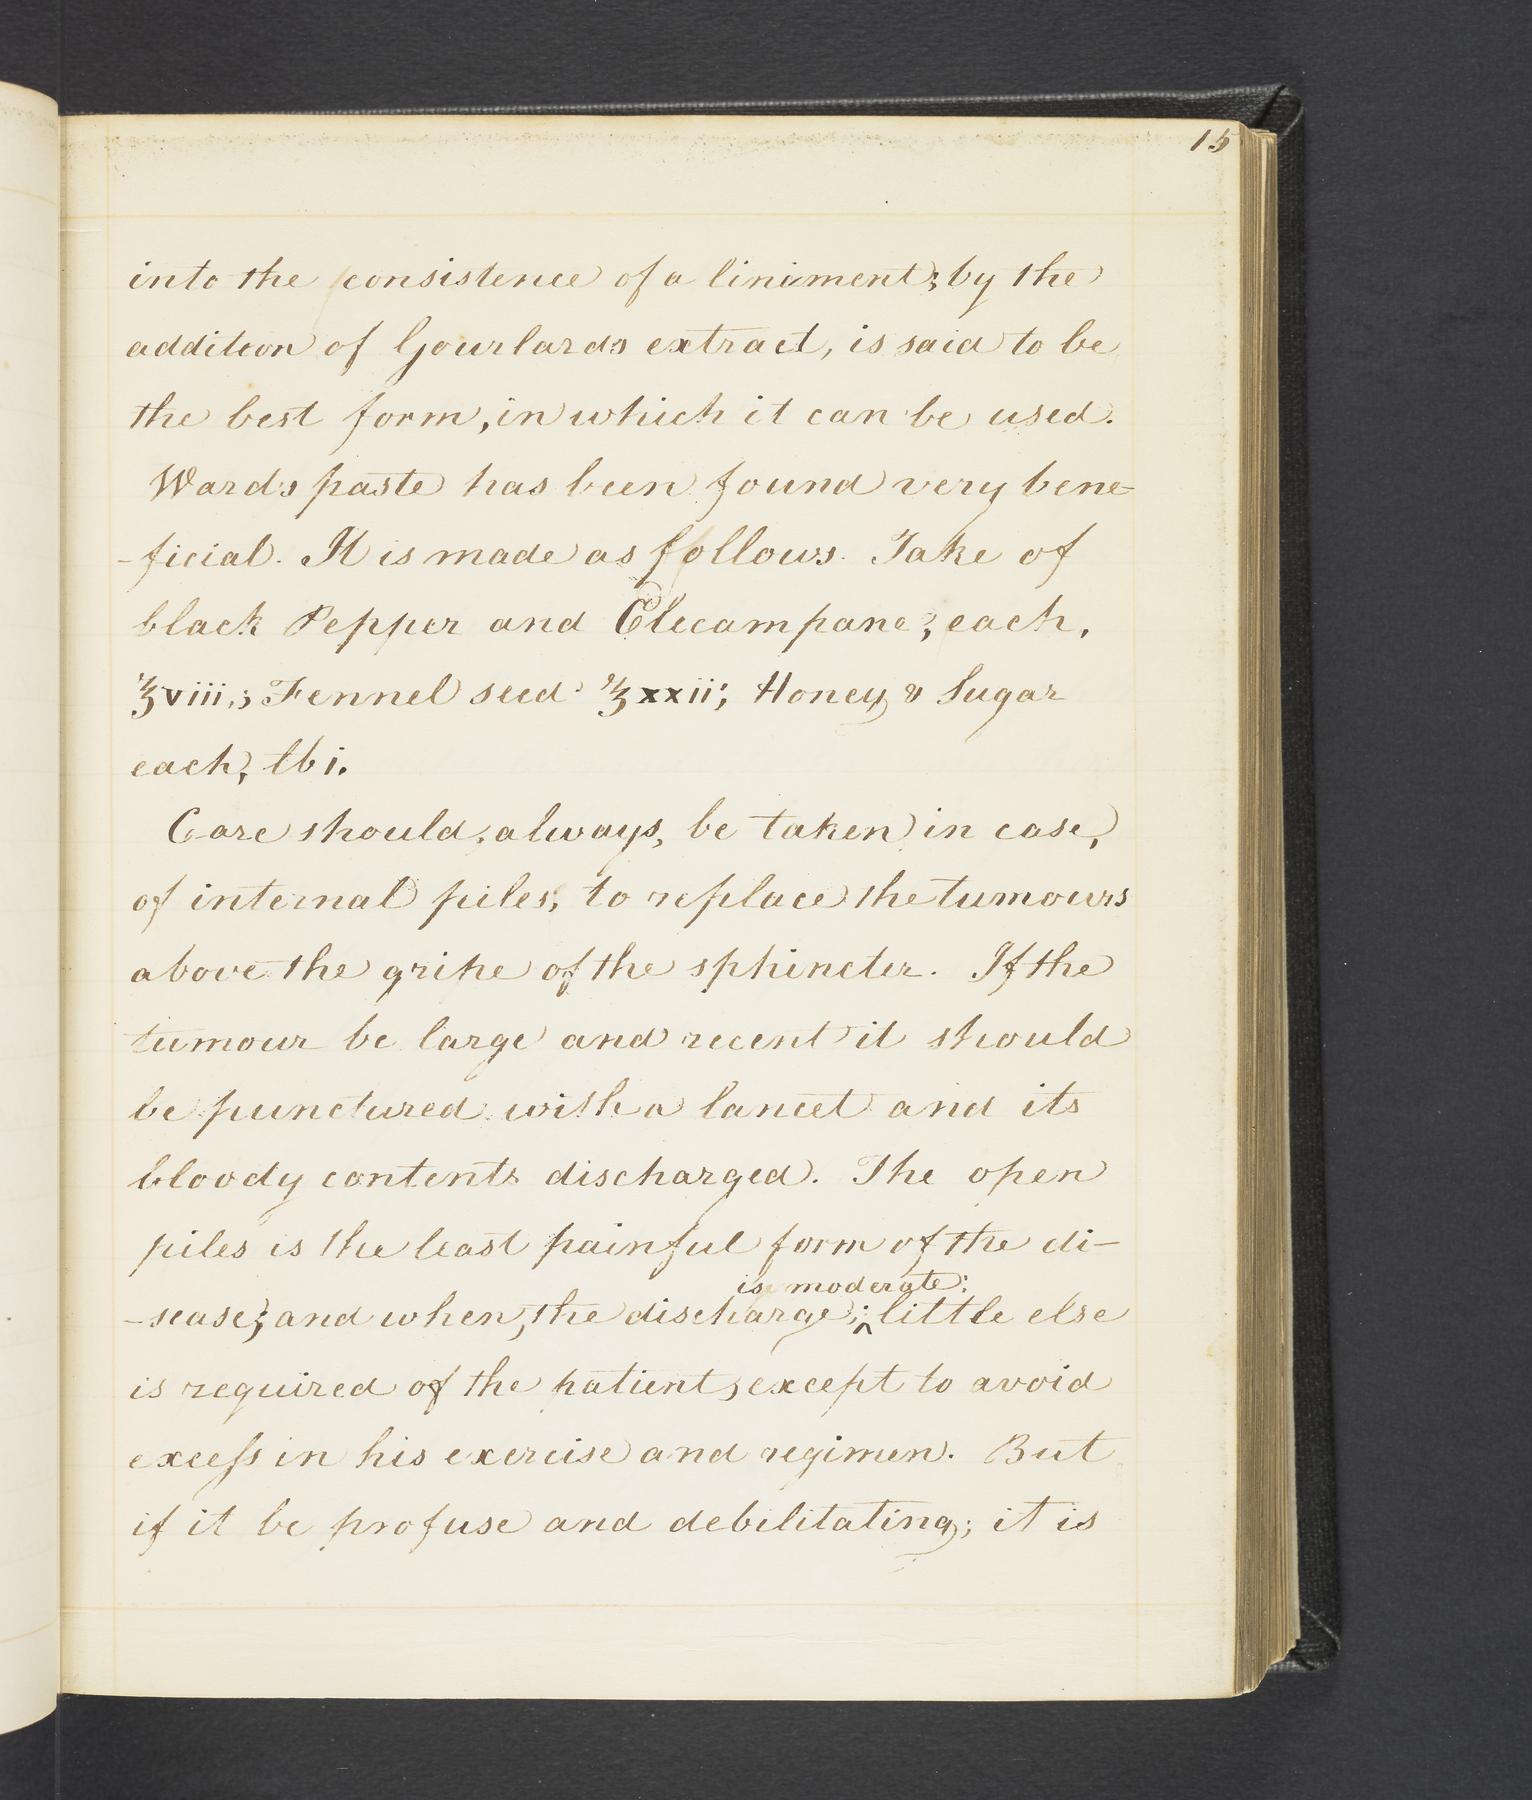 15
into the consistence of a liniment; by the
addition of Gourlards extract, is said to be
the best form, in which it can be used.
Wards paste has been found very bene-
-ficial. It is made as follows. Take of
black Pepper and Elecampane, each,
℥viii,; Fennel seed ℥xxii; Honey & Sugar
each, lbi.
Care should, always, be taken in case,
of internal piles, to replace the tumours
above the gripe of the sphincter. If the
tumour be large and recent it should
be punctured with a lancet and its
bloody contents discharged. The open
piles is the least painful form of the di-
is moderate:
-sease; and when, the discharge; ^ little else
is required of the patient, except to avoid
excess in his exercise and regimen. But
if it be profuse and debilitating; it is